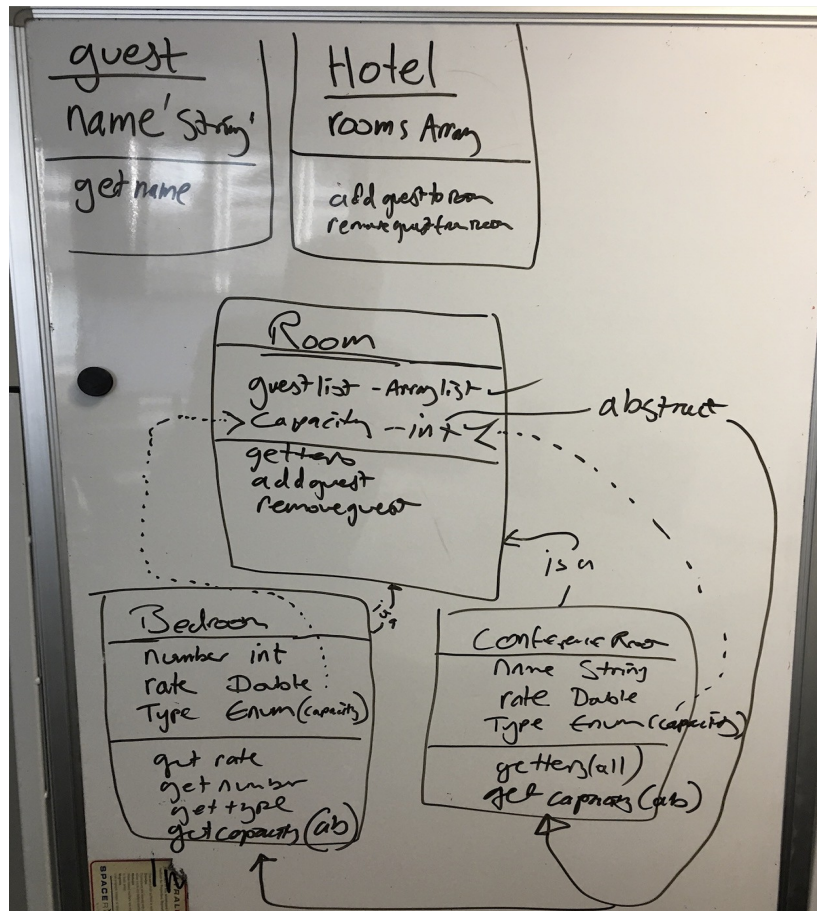 guest
name 'String'
get name
Hotel
rooms Array
add guest to room
remove guest from room
Room
guest list - Array list
Capacity - int
abstract
getters
add guest
remove guest
is a
is a
Bedroom
number int
rate Double
Type Enum (capacity)
get rate
get number
get type
get capacity (ab)
Conference Room
name String
rate Double
Type Enum (capacity)
getters (all)
get capacity (ab)